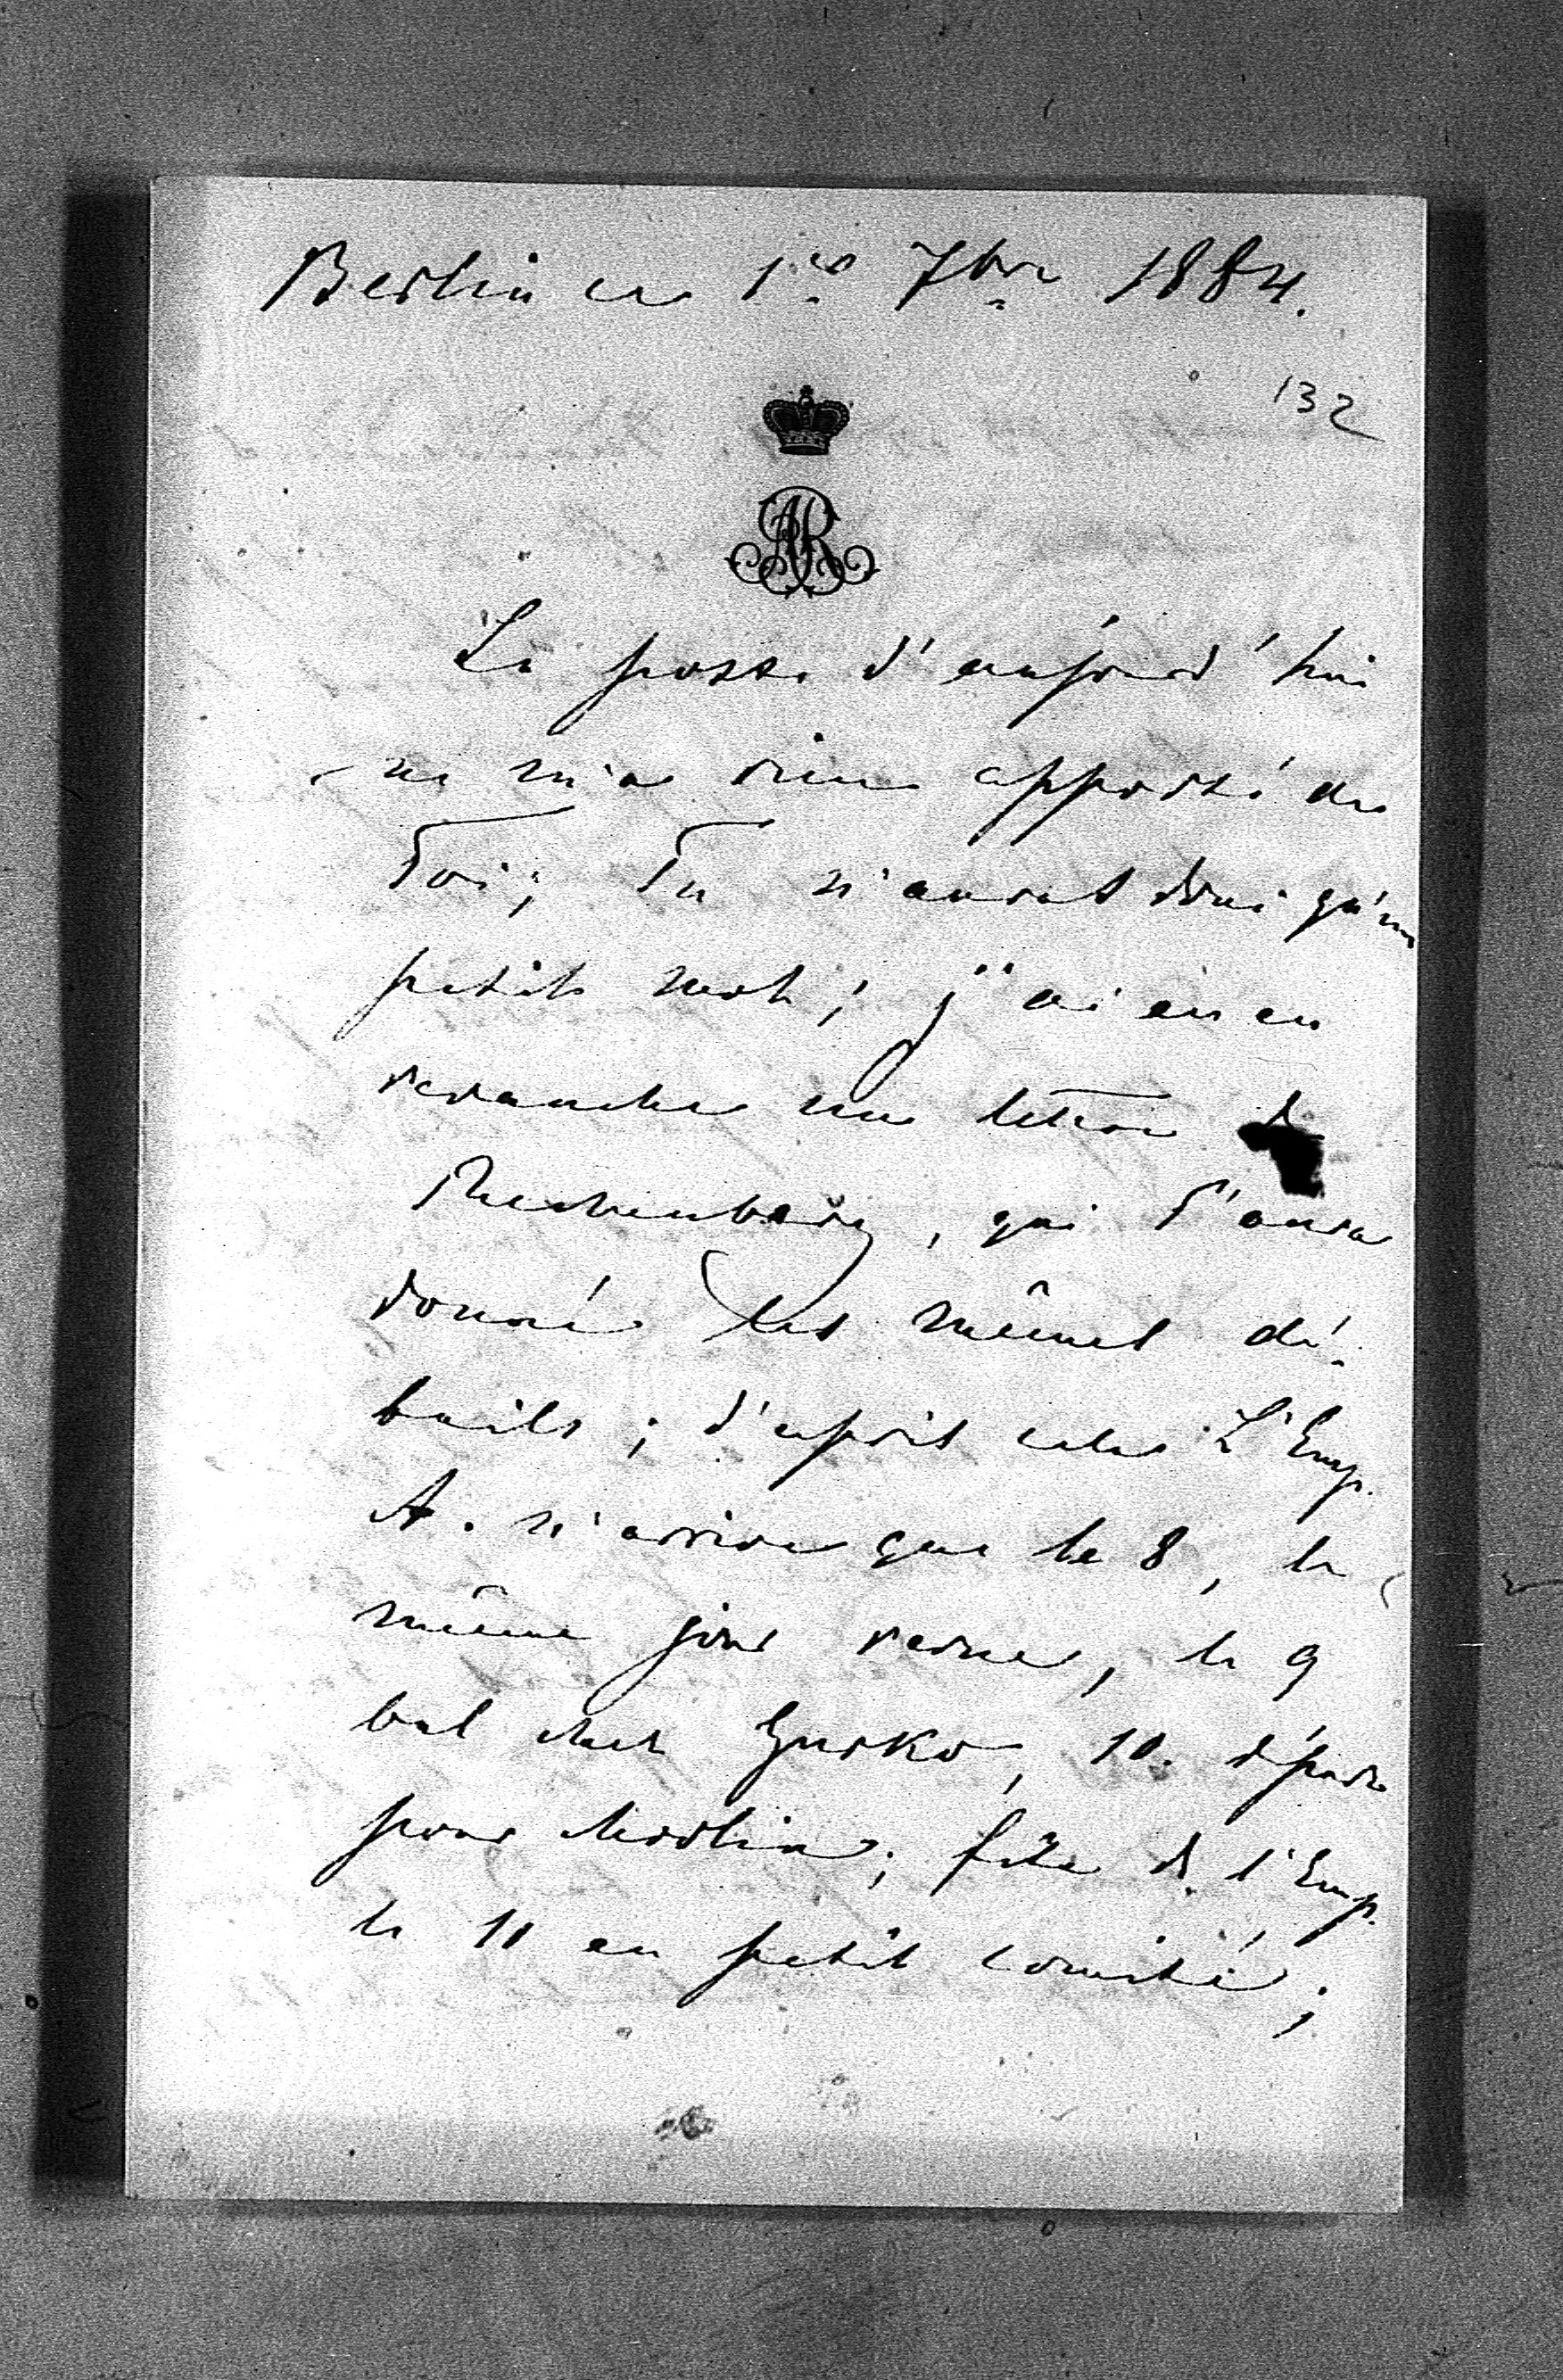 Berlin ce 1er 7bre 1884.
132
AR
La poste d'aujourd'hui
ne m'a rien apporté de
Toi; Tu n'auras donc qu'un
petit mot; j'ai eu en
revanche une lettre de
Rechenberg, qui T'aura
donné les mêmes dé-
tails; d'après cela L'Emp.
A. n'arrive que le 8, le
même jour revue, le 9
bal chez Gurko, 10. départ
pour Modlin; fête de l'Emp.
le 11 en petit comité;